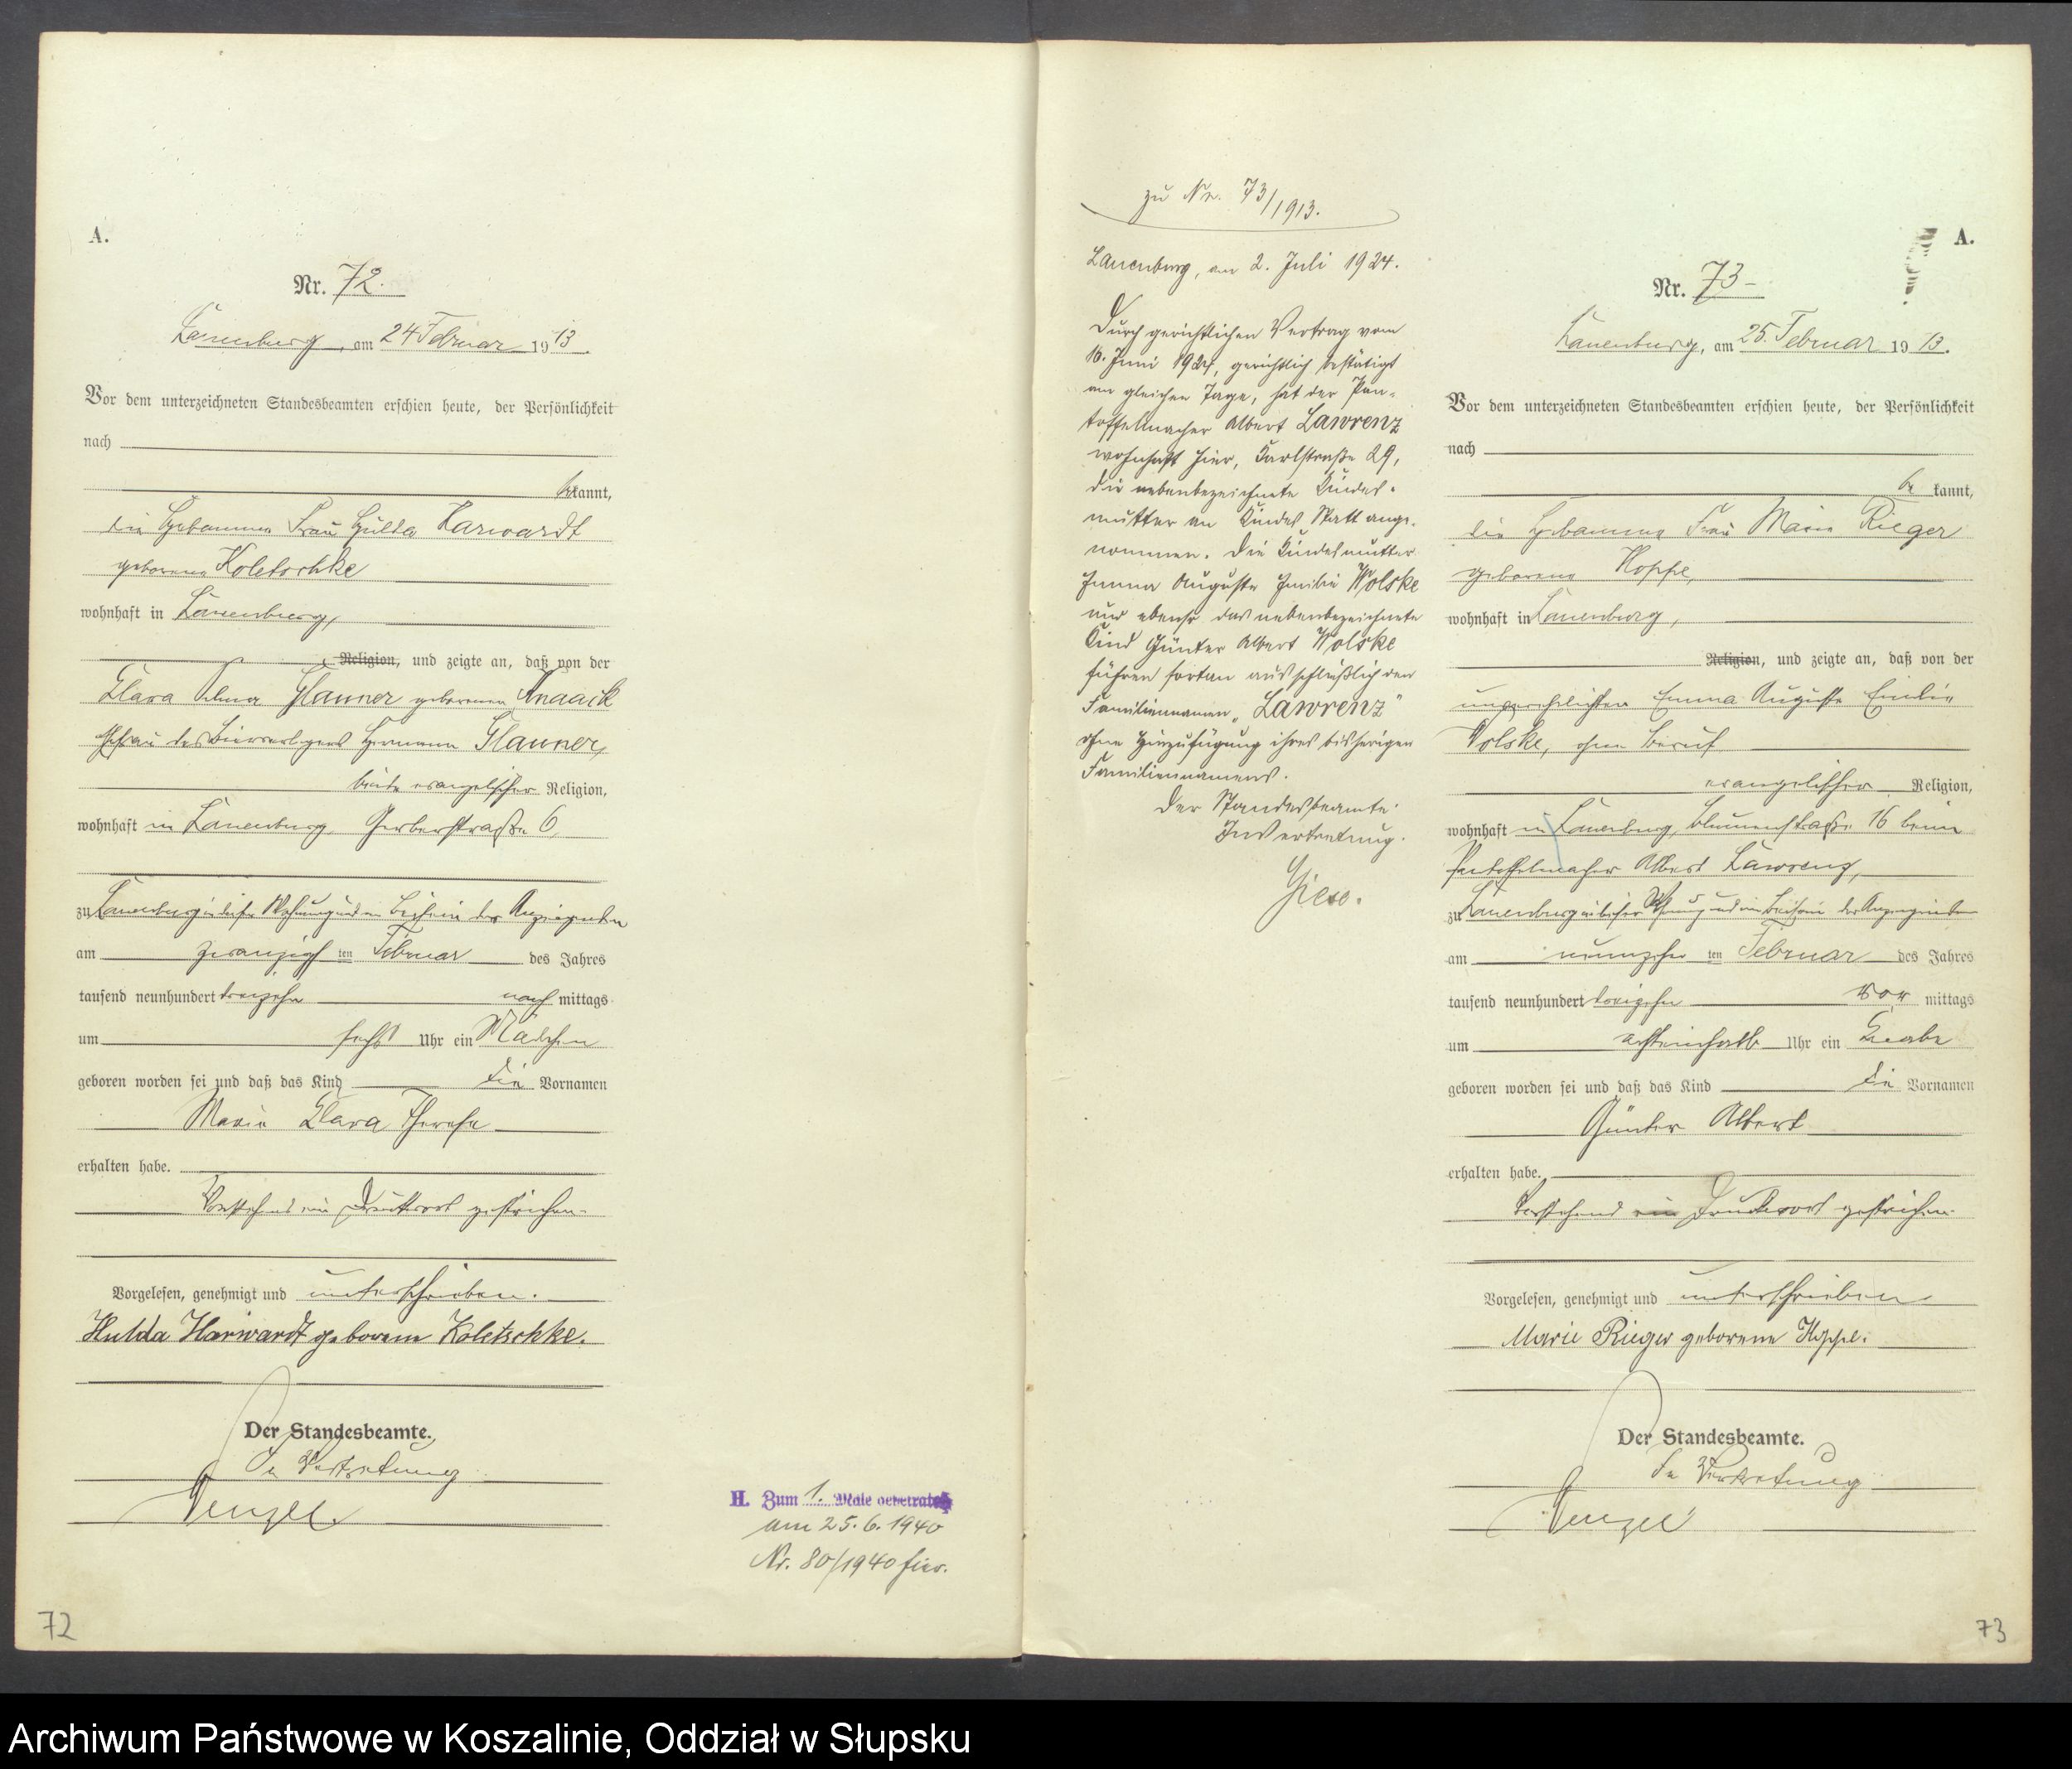 A.
Nr. 72.
Lauenburg, am 24 Februar 1913.
Vor dem unterzeichneten Standesbeamten erschien heute, der Persönlichkeit
nach
bekannt,
die Hebamme Frau Hulda Harwardt
geborene Koletschke
wohnhaft in Lauenburg,
Religion, und zeigte an, daß von der
Clara Glauner geborenen Knaack
Ehefrau des Bierverlegers Hermann Glauner,
beide evangelischer Religion,
wohnhaft in Lauenburg, Gerberstraße 6,
zu Lauenburg in dieser Wohnung und in Beisein der Anzeigenden
am zwanzigsten Februar des Jahres
tausend neunhundert dreizehn nachmittags
um sechs Uhr ein Mädchen
geboren worden sei und daß das Kind die Vornamen
Marie Clara Therese
erhalten habe.
Vorstehend ein Druckwort gestrichen.
Vorgelesen, genehmigt und unterschrieben.
Hulda Harwardt geborene Koletschke.
Der Standesbeamte.
In Vertretung
Wenzel
H. Zum 1. Male geheiratet
am 25.6.1940
Nr. 80/1940 hier.
72
zu Nr. 73/1913.
Lauenburg, am 2. Juli 1924.
Durch gerichtlichen Vertrag vom
16. Juni 1924, gerichtlich bestätigt
am gleichen Tage, hat der Pan-
toffelmacher Albert Lawrenz
wohnhaft hier, Karlstraße 29,
die nebenbezeichnete Kindes-
mutter an Kindes Statt ange-
nommen. Die Kindesmutter
Emma Auguste Emilie Wolske
und ebenso das nebenbezeichnete
Kind Günter Albert Wolske
führen fortan ausschließlich den
Familiennamen „Lawrenz"
ohne Hinzufügung ihres bisherigen
Familiennamens.
Der Standesbeamte.
In Vertretung.
Giese.
A.
Nr. 73
Lauenburg, am 25. Februar 1913.
Vor dem unterzeichneten Standesbeamten erschien heute, der Persönlichkeit
nach
bekannt,
die Hebamme Frau Marie Rieger
geborene Hoppe,
wohnhaft in Lauenburg,
Religion, und zeigte an, daß von der
unverehelichten Emma Auguste Emilie
Wolske, ohne Beruf
evangelischer Religion,
wohnhaft in Lauenburg, Blumenstraße 16 beim
Pantoffelmacher Albert Lawrenz,
zu Lauenburg in dieser Wohnung und in Beisein der Anzeigenden
am neunzehnten Februar des Jahres
tausend neunhundert dreizehn vormittags
um achteinhalb Uhr ein Knabe
geboren worden sei und daß das Kind die Vornamen
Günter Albert
erhalten habe.
Vorstehend ein Druckwort gestrichen.
Vorgelesen, genehmigt und unterschrieben
Marie Rieger geborene Hoppe.
Der Standesbeamte.
In Vertretung
Wenzel
73
Archiwum Państwowe w Koszalinie, Oddział w Słupsku